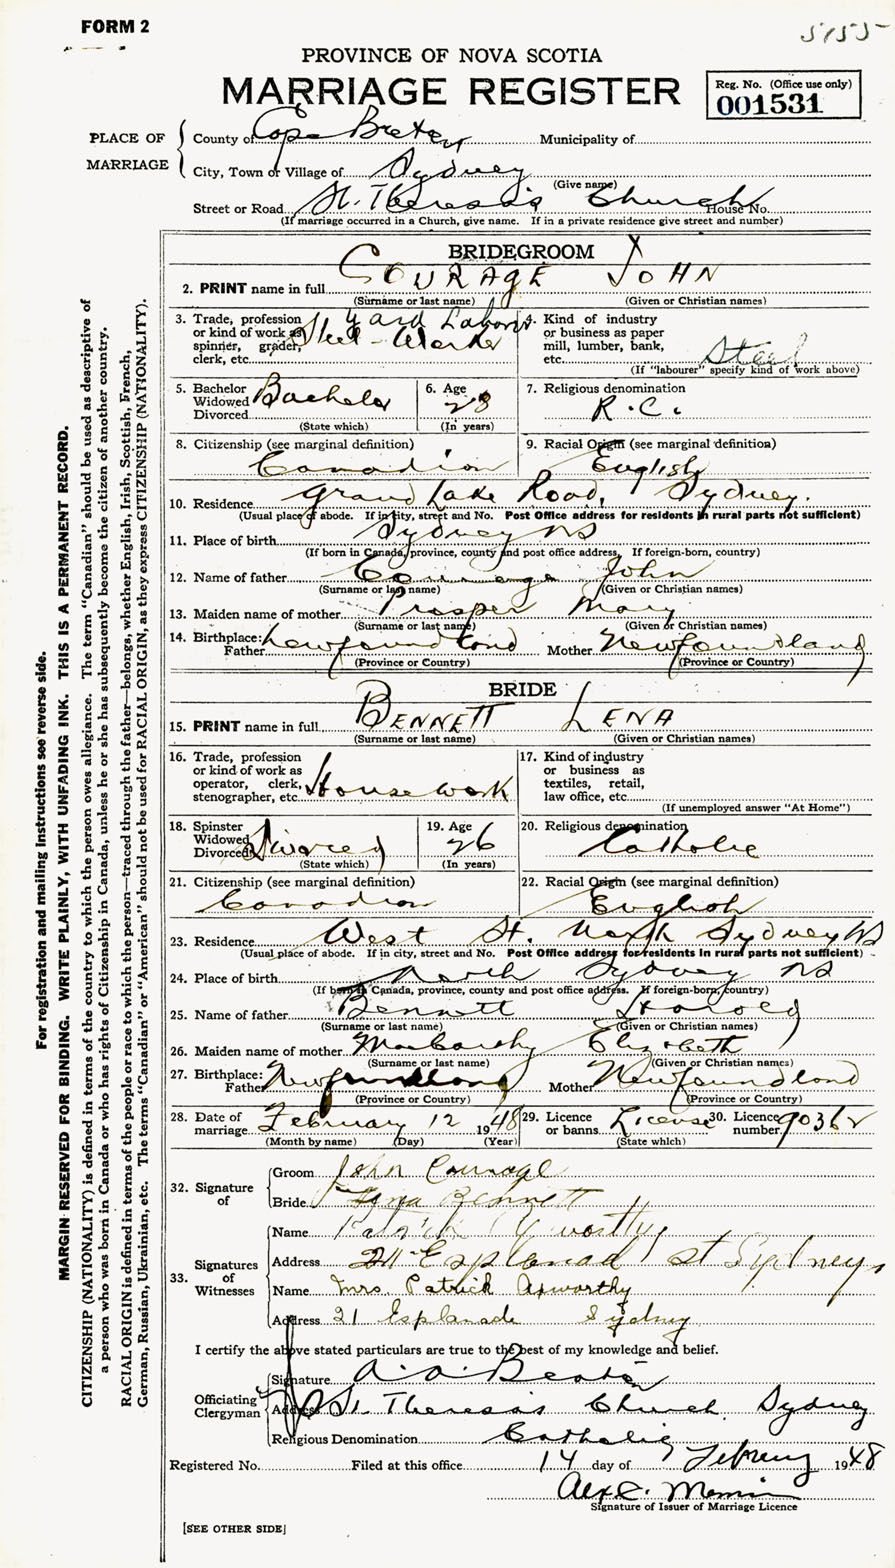 FORM 2
5155
PROVINCE OF NOVA SCOTIA
MARRIAGE REGISTER
Reg. No. (Office use only)
001531
PLACE OF MARRIAGE
County of Cape Breton Municipality of
City, Town or Village of Sydney
(Give name)
Street or Road St. Theresa's Church House No.
(If marriage occurred in a Church, give name. If in a private residence give street and number)
BRIDEGROOM
2. PRINT name in full COURAGE JOHN
(Surname or last name) (Given or Christian names)
3. Trade, profession or kind of work as spinner, grader, clerk, etc. Yard Laborer Steel-Worker
4. Kind of industry or business as paper mill, lumber, bank, etc. Steel
(If "labourer" specify kind of work above)
5. Bachelor Widowed Divorced Bachelor
(State which)
6. Age 28
(In years)
7. Religious denomination R.C.
8. Citizenship (see marginal definition) Canadian
9. Racial Origin (see marginal definition) English
10. Residence Grand Lake Road, Sydney.
(Usual place of abode. If in city, street and No. Post Office address for residents in rural parts not sufficient)
11. Place of birth Sydney NS
(If born in Canada, province, county and post office address. If foreign-born, country)
12. Name of father Courage John
(Surname or last name) (Given or Christian names)
13. Maiden name of mother Prosper Mary
(Surname or last name) (Given or Christian names)
14. Birthplace: Father Newfoundland Mother Newfoundland
(Province or Country) (Province or Country)
BRIDE
15. PRINT name in full BENNETT LENA
(Surname or last name) (Given or Christian names)
16. Trade, profession or kind of work as operator, clerk, stenographer, etc. Housework
17. Kind of industry or business as textiles, retail, law office, etc.
(If unemployed answer "At Home")
18. Spinster Widowed Divorced Divorced
(State which)
19. Age 26
(In years)
20. Religious denomination Catholic
21. Citizenship (see marginal definition) Canadian
22. Racial Origin (see marginal definition) English
23. Residence West St. North Sydney NS
(Usual place of abode. If in city, street and No. Post Office address for residents in rural parts not sufficient)
24. Place of birth North Sydney NS
(If born in Canada, province, county and post office address. If foreign-born, country)
25. Name of father Bennett Harold
(Surname or last name) (Given or Christian names)
26. Maiden name of mother MacCarthy Elizabeth
(Surname or last name) (Given or Christian names)
27. Birthplace: Father Newfoundland Mother Newfoundland
(Province or Country) (Province or Country)
28. Date of marriage February 12 1948
(Month by name) (Day) (Year)
29. Licence or banns License
(State which)
30. Licence number 90362
32. Signature of
Groom John Courage
Bride Lena Bennett
33. Signatures of Witnesses
Name Patrick Axworthy
Address 21 Esplanad st Sydney
Name Mrs. Patrick Axworthy
Address 21 Esplanade Sydney
I certify the above stated particulars are true to the best of my knowledge and belief.
Officiating Clergyman
Signature A. A. Beaton
Address St. Theresa's Church Sydney
Religious Denomination Catholic
Registered No. Filed at this office 14 day of February 1948
Signature of Issuer of Marriage Licence
[SEE OTHER SIDE]
For registration and mailing instructions see reverse side.
MARGIN RESERVED FOR BINDING. WRITE PLAINLY, WITH UNFADING INK. THIS IS A PERMANENT RECORD.
CITIZENSHIP (NATIONALITY) is defined in terms of the country to which the person owes allegiance. The term "Canadian" should be used as descriptive of
a person who was born in Canada or who has rights of Citizenship in Canada, unless he or she has subsequently become the citizen of another country.
RACIAL ORIGIN is defined in terms of the people or race to which the person—traced through the father—belongs, whether English, Irish, Scottish, French,
German, Russian, Ukrainian, etc. The terms "Canadian" or "American" should not be used for RACIAL ORIGIN, as they express CITIZENSHIP (NATIONALITY).